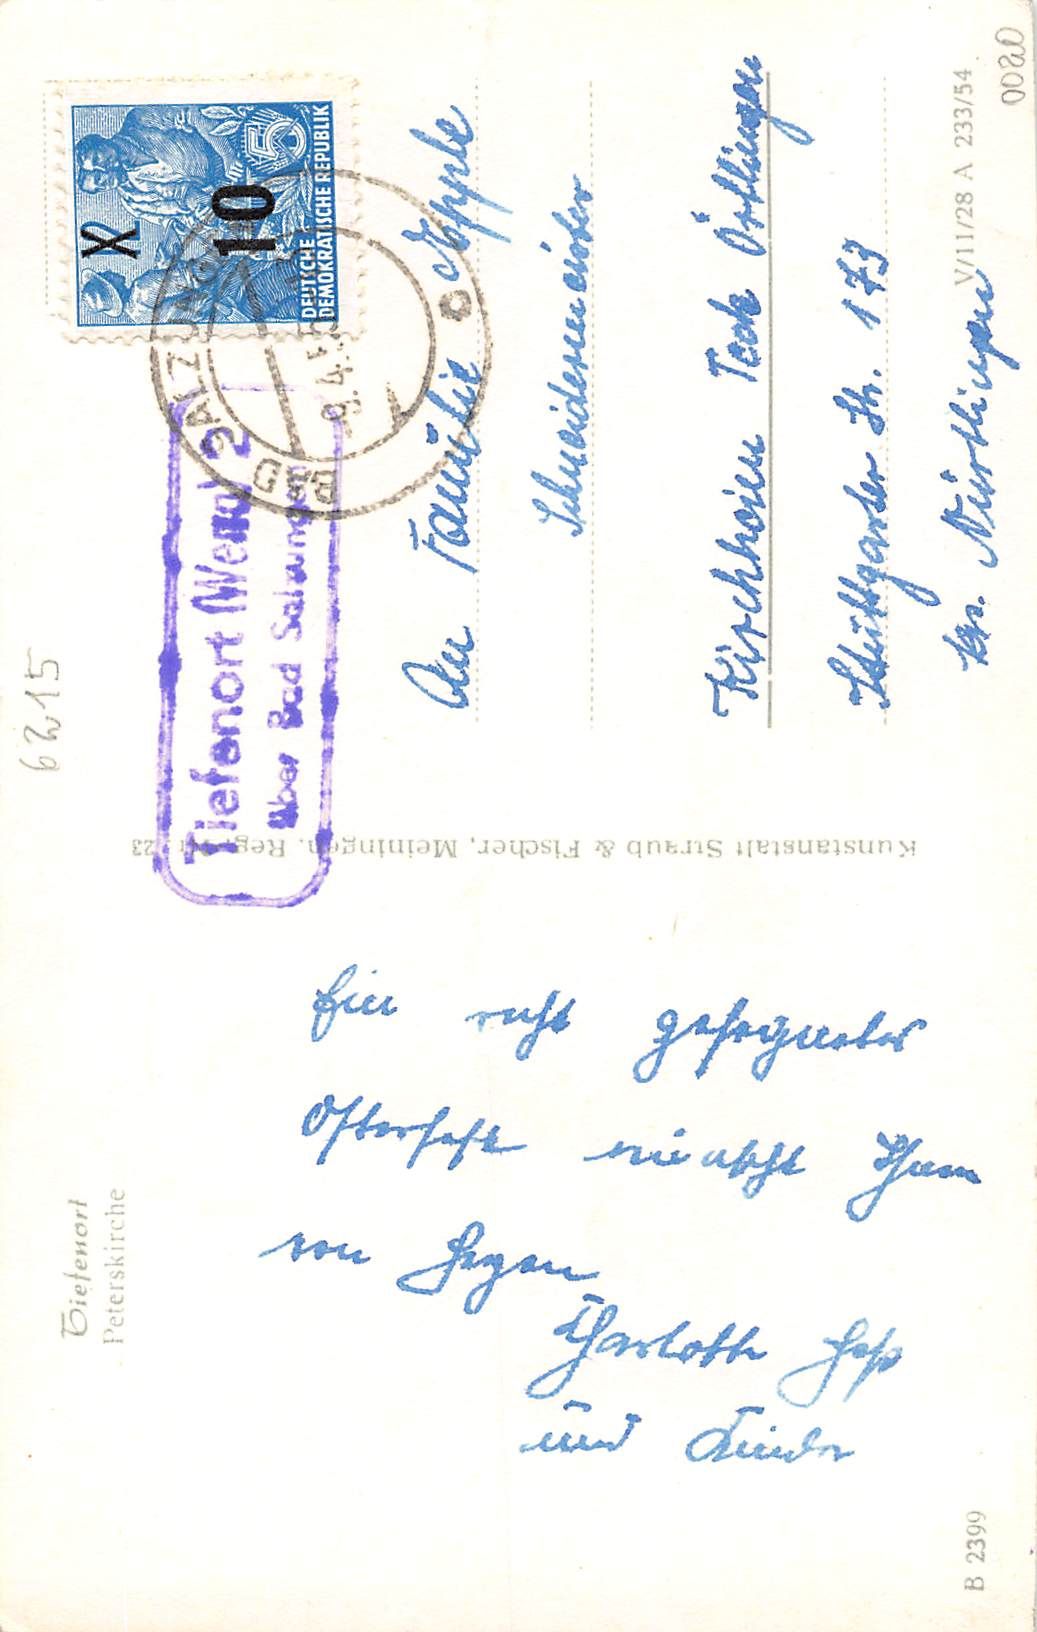 Tiefenort
Peterskirche
Ein recht gesegnetes
Osterfest wünscht Ihnen
von Herzen
Charlotte Heß
und Kinder
B 2399
Kunstanstalt Straub & Fischer, Meiningen. Reg.-Nr. 23
6215
Tiefenort (Werra) 2
über Bad Salzungen
BAD SALZUNGEN
9.4.5
X
10
50
DEUTSCHE
DEMOKRATISCHE REPUBLIK
An Familie Epple
Schneidermeister
Kirchheim Teck Ötlingen
Stuttgarter Str. 173
Kr. Nürtingen
V/11/28 A 233/54
0020